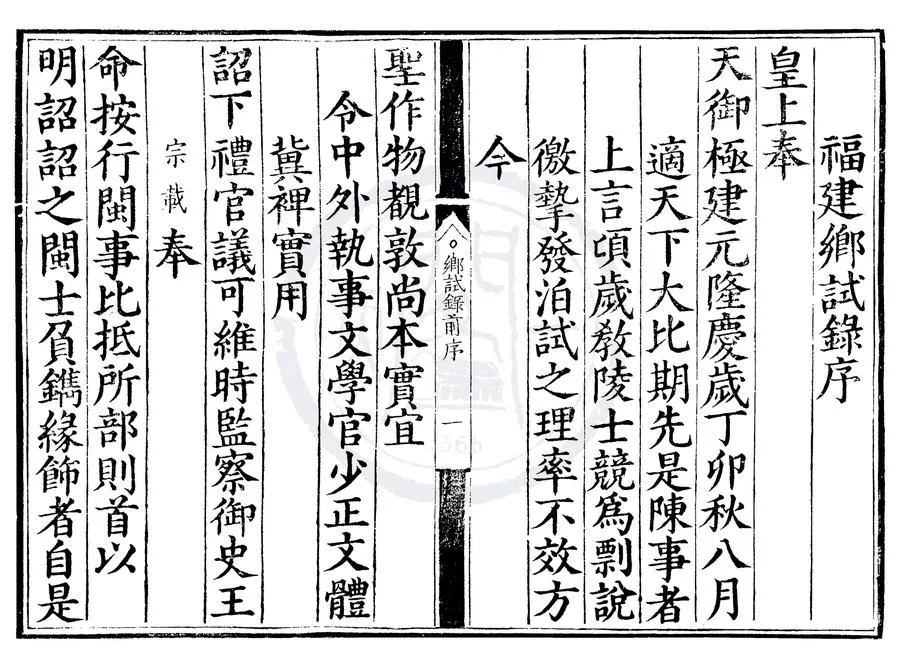 福建鄉試錄序
皇上奉
天御極建元隆慶歲丁卯秋八月
適天下大比期先是陳事者
上言頃歲敎陵士競爲剽說
徼摯發泊試之理率不效方
今
鄉試錄前序 一
聖作物覩敦尚本實宜
令中外執事文學官少正文體
冀裨實用
詔下禮官議可維時監察御史王
宗載奉
命按行閩事比抵所部則首以
明詔詔之閩士負鐫緣飾者自是